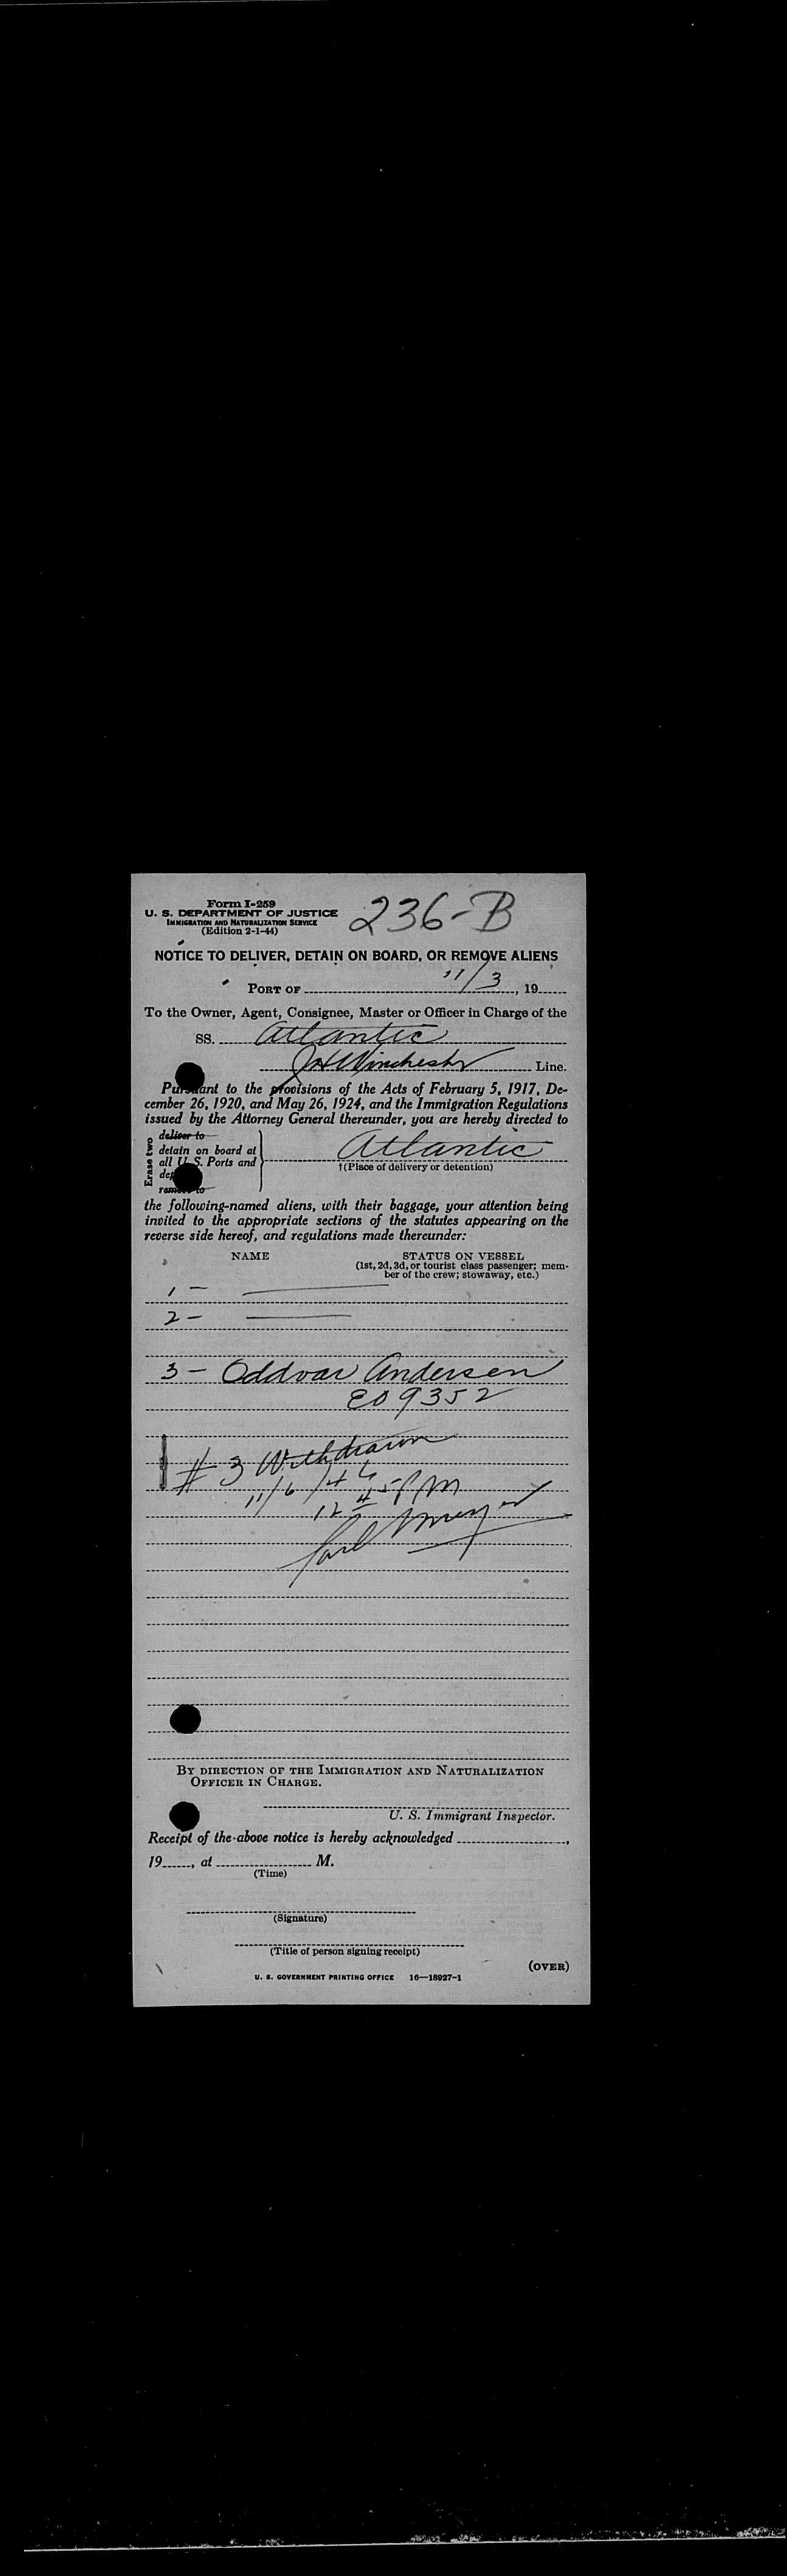 Form I-259
U. S. DEPARTMENT OF JUSTICE
IMMIGRATION AND NATURALIZATION SERVICE
(Edition 2-1-44)
236-B
NOTICE TO DELIVER, DETAIN ON BOARD, OR REMOVE ALIENS
PORT OF 11/3, 19
To the Owner, Agent, Consignee, Master or Officer in Charge of the
SS. Atlantic
JH Winchester Line.
Pursuant to the provisions of the Acts of February 5, 1917, De-
cember 26, 1920, and May 26, 1924, and the Immigration Regulations
issued by the Attorney General thereunder, you are hereby directed to
Erase two
deliver to
detain on board at
all U. S. Ports and
remove to
Atlantic
†(Place of delivery or detention)
the following-named aliens, with their baggage, your attention being
invited to the appropriate sections of the statutes appearing on the
reverse side hereof, and regulations made thereunder:
NAME
STATUS ON VESSEL
(1st, 2d, 3d, or tourist class passenger; mem-
ber of the crew; stowaway, etc.)
1 —
2 —
3 — Oddvar Andersen
E09352
# 3 Withdrawn
11/6/46
12 45 PM
By direction of the Immigration and Naturalization
Officer in Charge.
U. S. Immigrant Inspector.
Receipt of the above notice is hereby acknowledged ,
19 , at M.
(Time)
(Signature)
(Title of person signing receipt)
(OVER)
U. S. GOVERNMENT PRINTING OFFICE 16—18927-1